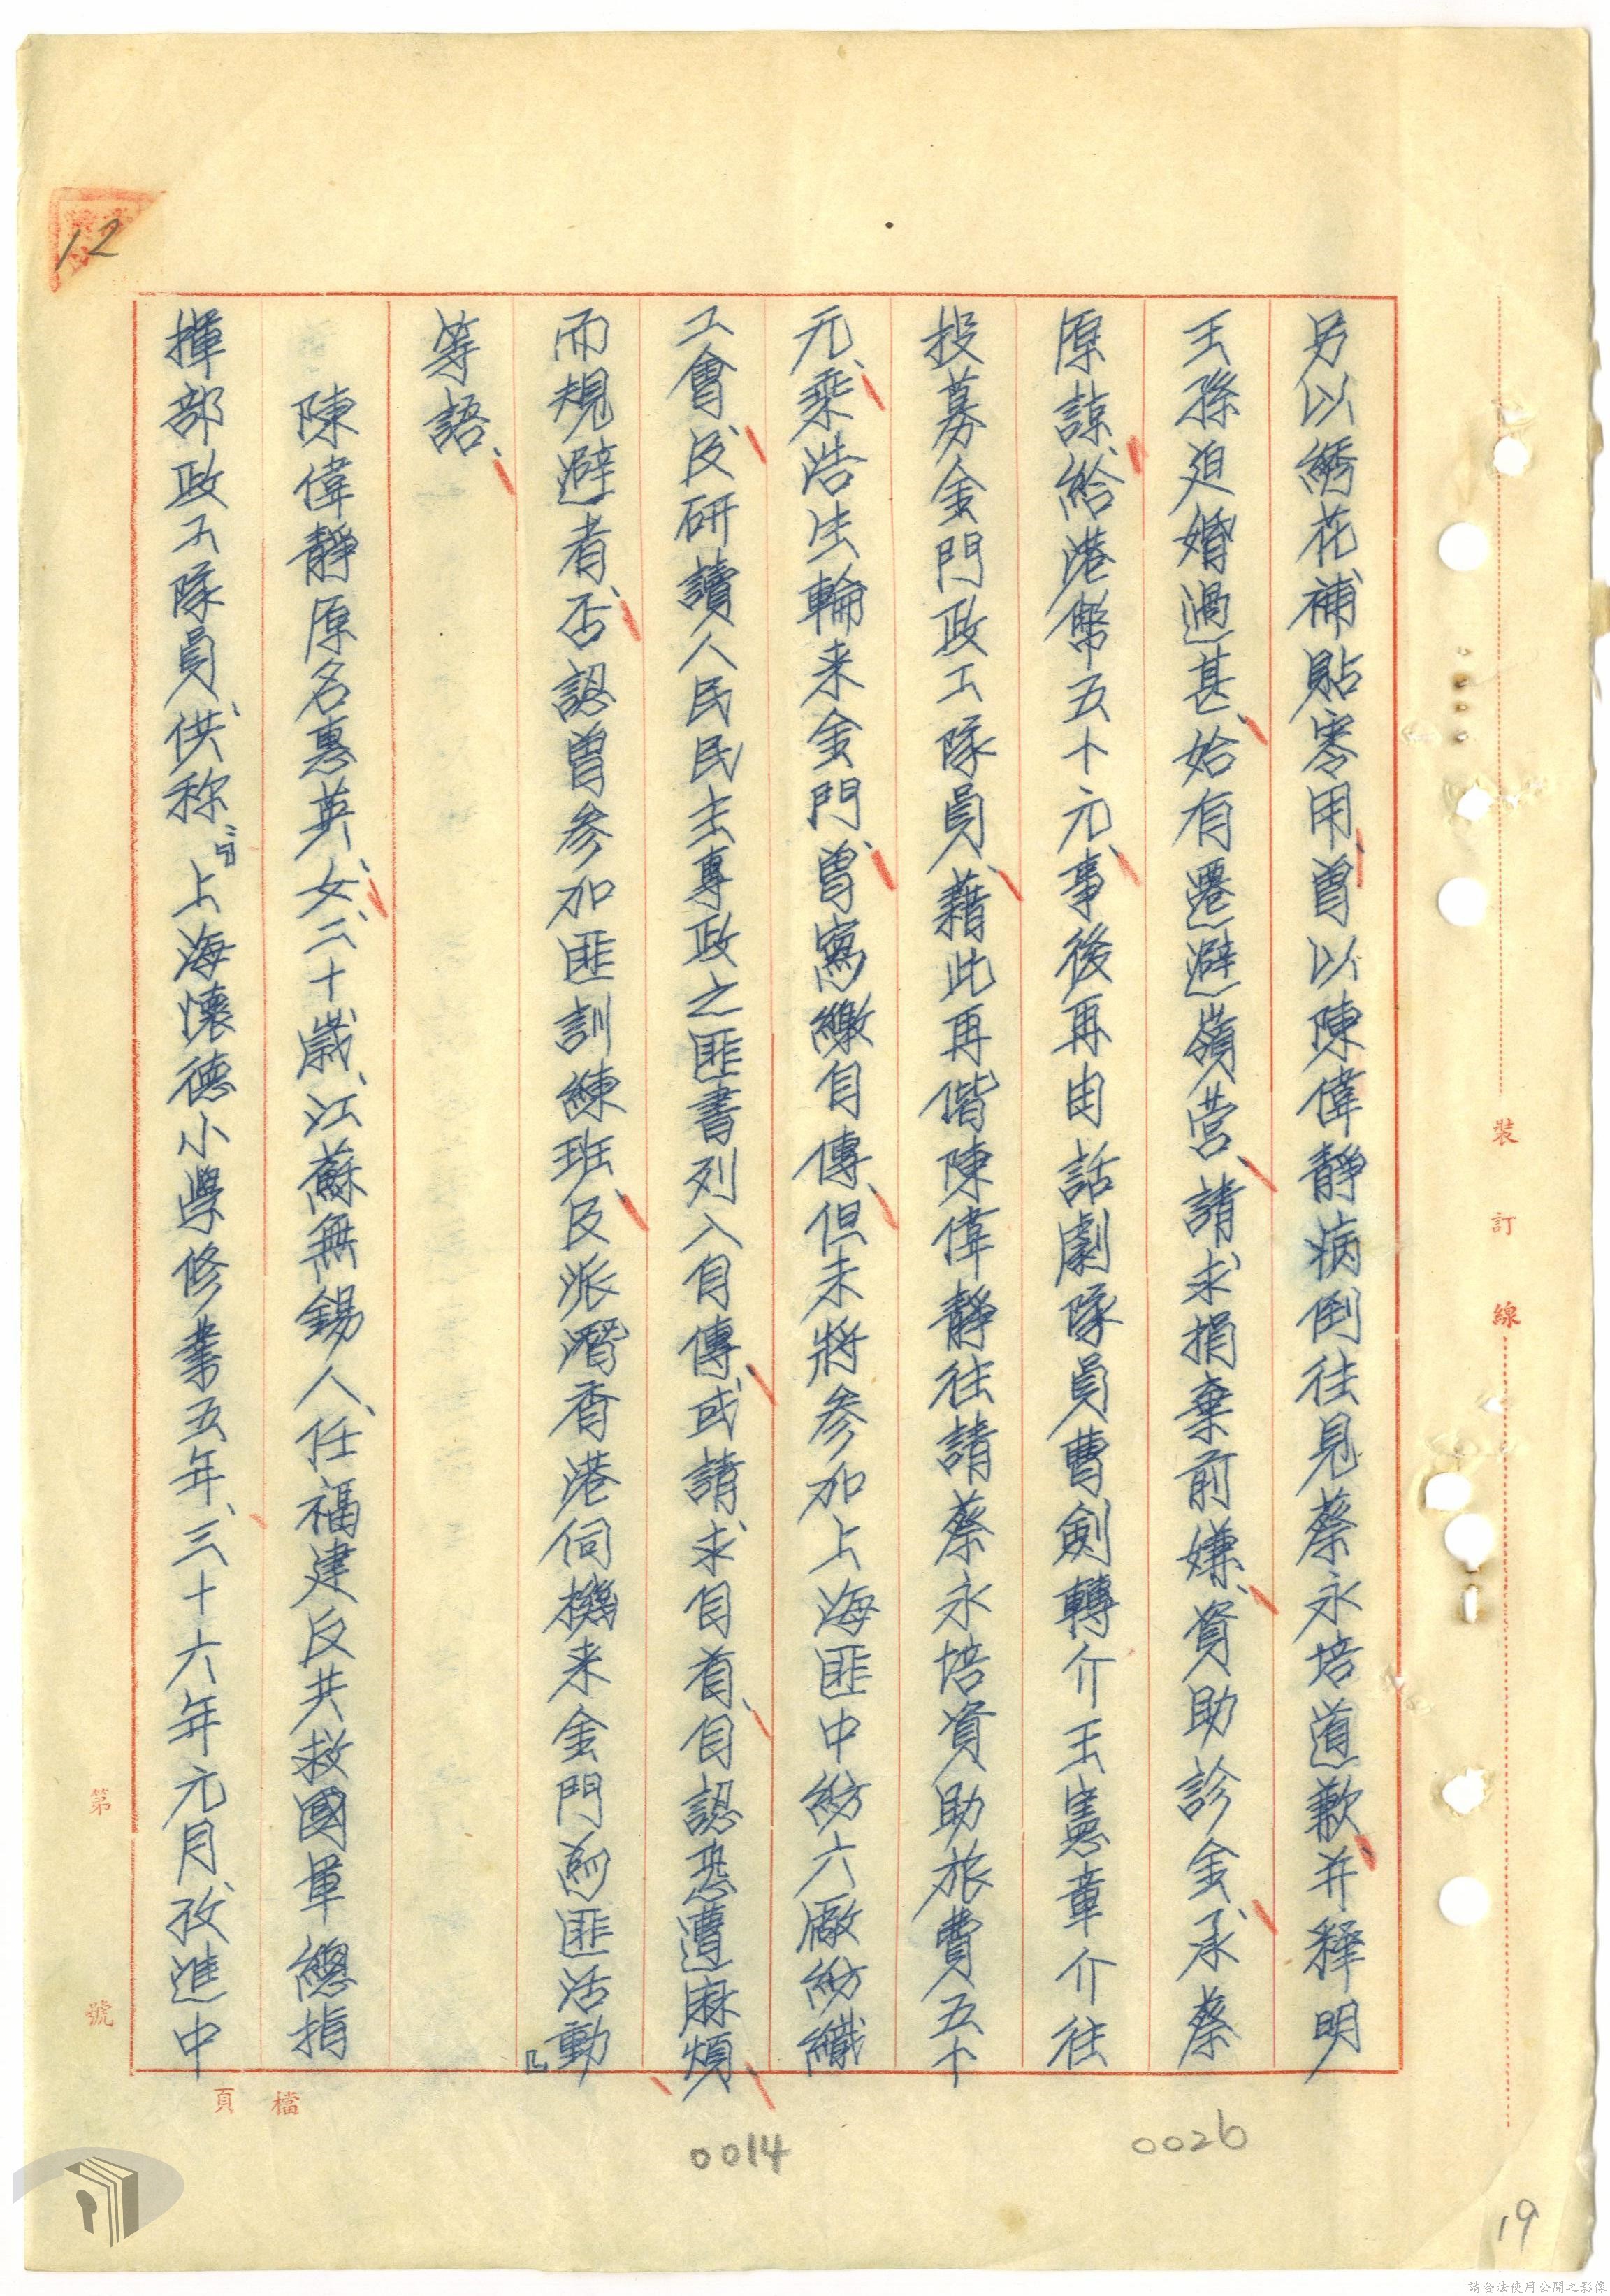 另以綉花補貼零用、曾以陳偉靜病倒往見蔡永培道歉、并釋明
王孫迫婚過甚、始有遷避嶺營、請求捐棄前嫌、資助診金、承蔡
原諒、給港幣五十元、事後再由話劇隊員曹劍轉介王憲章介往
投募金門政工隊員、藉此再偕陳偉靜往請蔡永培資助旅費五十
元、乘浩生輪来金門、曾寫繳自傳、但未將參加上海匪中紡六廠紡織
工會、及研讀人民民主專政之匪書列入自傳、或請求自首、自認恐遭麻煩、
而規避者、否認曾参加匪訓練班、及派潛香港伺機来金門為匪活動』
等語、
陳偉靜原名惠英、女、二十歲、江蘇無錫人、任福建反共救國軍總指
揮部政工隊員、供称：『上海懷德小學修業五年、三十六年元月、攷進中
裝 訂 線
第 號
檔 頁
12
0014
0026
19
請合法使用公開之影像